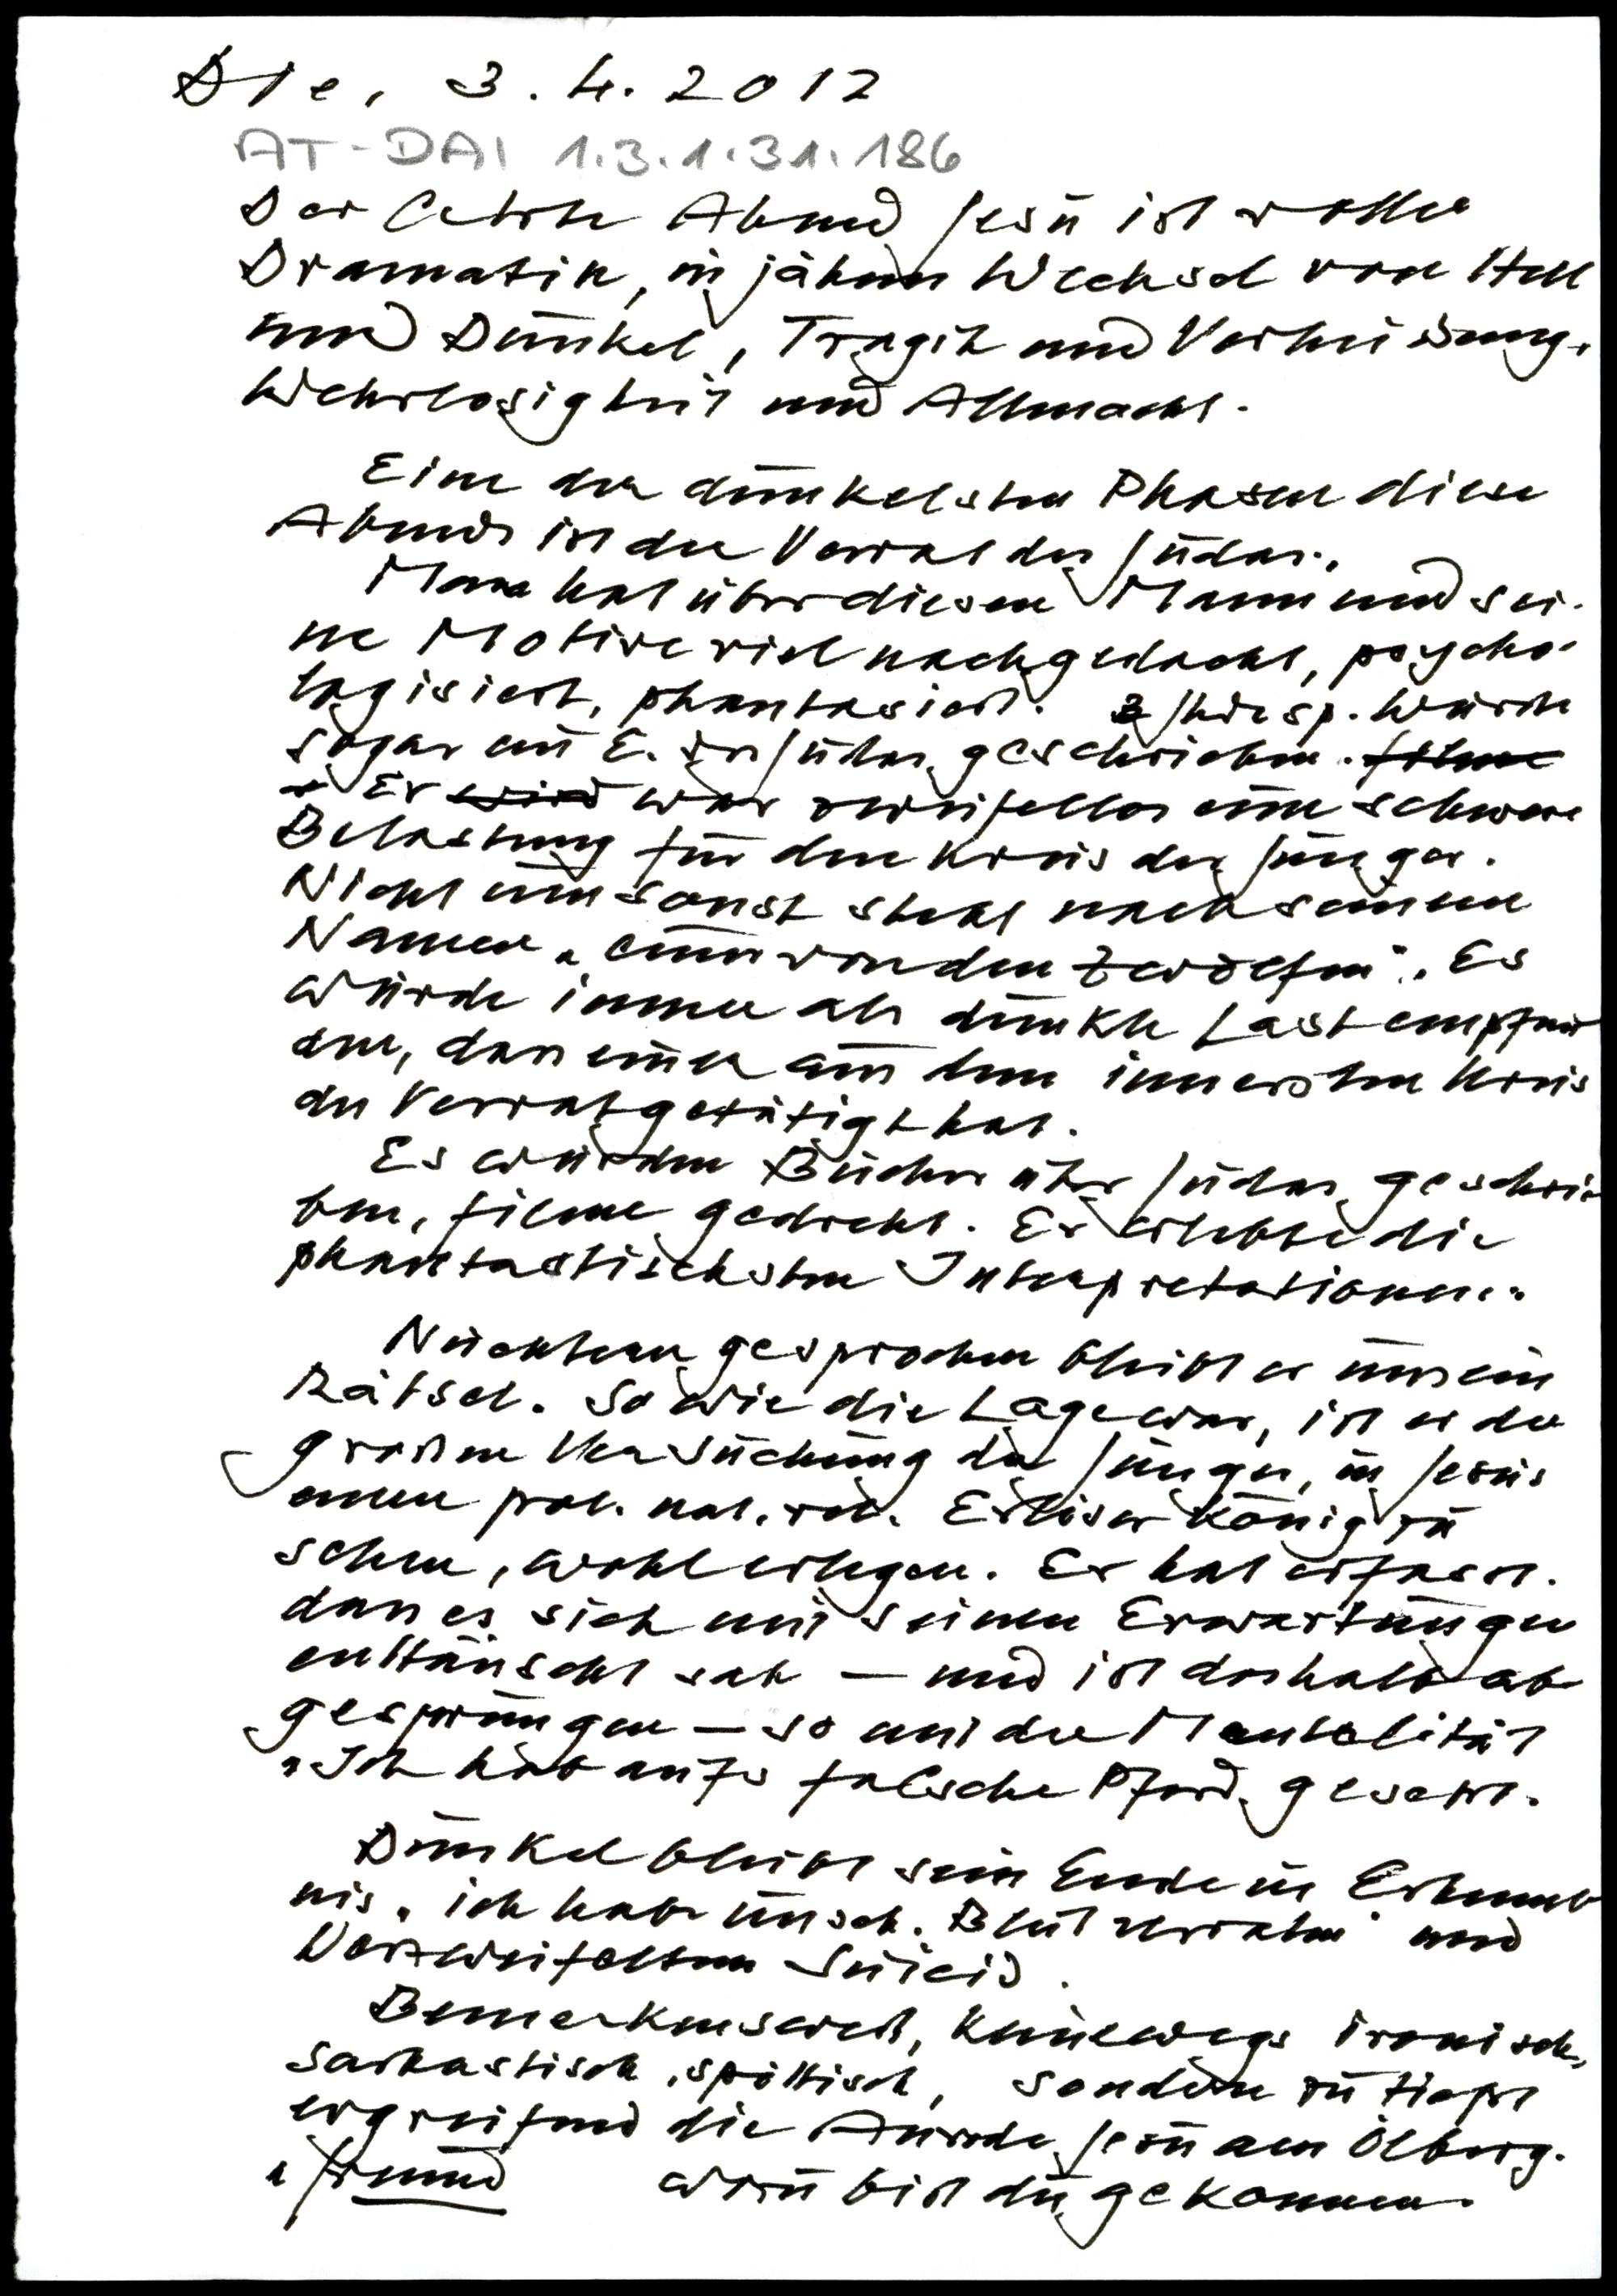 Die, 3.4.2012
AT-DAI 1.3.1.31.186
Der letzte Abend Jesu ist voller
Dramatik, in jähem Wechsel von Hell
und Dunkel, Tragik und Verheissung,
Wehrlosigkeit und Allmacht.
Eine der dunkelsten Phasen dieses
Abends ist der Verrat des Judas.
Man hat über diesen Mann und sei-
ne Motive viel nachgedacht, psycho-
logisiert, phantasiert. wurde
sogar ein E. des Judas geschrieben.
Er wird war zweifellos eine schwere
Belastung für den Kreis der Jünger.
Nicht umsonst steht nach seinem
Namen "einer von den Zwölfen". Es
wurde immer als dunkle Last empfun
den, dass einer aus dem innersten Kreis
den Verrat getätigt hat.
Es wurden Bücher über Judas geschrie
ben, Filme gedreht. Er erlebte die
phantastischsten Interpretationen.
Nüchtern gesprochen bleibt er uns ein
Rätsel. So wie die Lage war, ist er der
grossen Versuchung der Jünger, in Jesus
einen pol. nat. rel. Erlöserkönig zu
sehen, wohl erlegen. Er hat erfasst.
dass er sich mit seinen Erwartungen
enttäuscht sah – und ist deshalb ab
gesprungen – so mit der Mentalität
"Ich hab aufs falsche Pferd gesetzt.
Dunkel bleibt sein Ende in Erkennt
nis "ich habe unsch. Blut verraten" und
Verzweifeltem Suicid.
Bemerkenswert, keineswegs ironisch,
sarkastisch, spöttisch, sondern zu tiefst
ergreifend die Anrede Jesu am Ölberg.
"Freund wozu bist du gekommen.